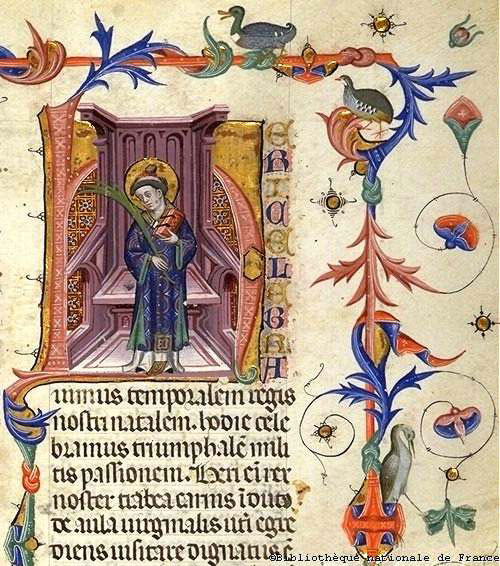 HERI CELEBRA
uimus temporalem regis
nostri natalem. hodie cele
bramus triumphalē mili
tis passionem. Heri eī rex
noster trabea carnis īduto
de aula uirginalis utī egre
diens uisitare dignatus
©Bibliothèque nationale de France